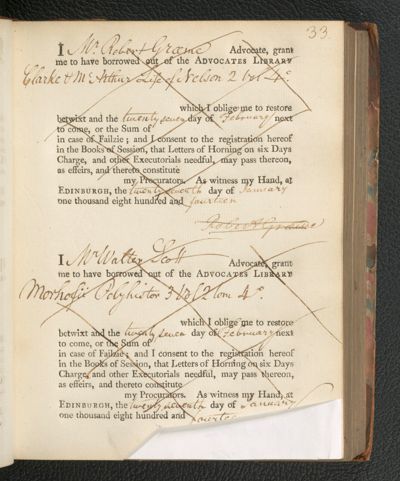 33
I Mr. Robert Græme Advocate, grant
me to have borrowed out of the ADVOCATES LIBRARY
Clarke & McArthur Life of Nelson 2 vol 4o.
which I oblige me to restore
betwixt and the twenty seven day of February next
to come, or the Sum of
in case of Failzie; and I consent to the registration hereof
in the Books of Session, that Letters of Horning on six Days
Charge, and other Executorials needful, may pass thereon,
as effeirs, and thereto constitute
my Procurators. As witness my Hand, at
EDINBURGH, the twenty seventh day of January
one thousand eight hundred and fourteen
Robert Græme
I Mr Walter Scott
Advocate, grant
me to have borrowed out of the ADVOCATES LIBRARY
Morhofii Polyhistor 3 vol 2 tom 4o.
which I oblige me to restore
betwixt and the twenty seven day of February next
to come, or the Sum of
in case of Failzie; and I consent to the registration hereof
in the Books of Session, that Letters of Horning on six Days
Charge, and other Executorials needful, may pass thereon,
as effeirs, and thereto constitute
my Procurators. As witness my Hand, at
EDINBURGH, the twenty seventh day of January
one thousand eight hundred and